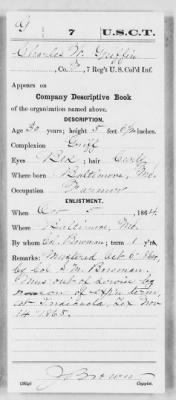 G | 7 | U.S.C.T.
Charles W. Griffin
, Co. , 7 Reg't U.S. Col'd Inf.
Appears on
Company Descriptive Book
of the organization named above.
DESCRIPTION.
Age 30 years; height 5 feet inches.
Complexion Griff
Eyes Blk ; hair Curly
Where born Baltimore, Md.
Occupation Farmer
ENLISTMENT.
When Oct 5, 1864
Where Baltimore, Md.
By whom Bowman; term 1 y'rs.
Remarks: Mustered Oct 5, 1864,
by Col. S. M. Bowman.
Mus. out of service by
reason of exp'n term,
at Indianola, Tex Nov
14" 1865.
J Brown
Copyist.